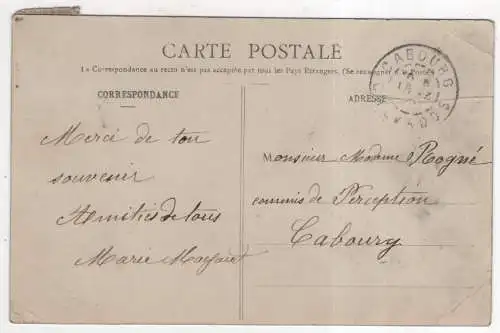 CARTE POSTALE
La Correspondance au recto n'est pas acceptée par tous les Pays Étrangers. (Se renseigner à la Poste)
CORRESPONDANCE
ADRESSE
CABOURG
Merci de ton
souvenir
Amitiés de tous
Marie
Monsieur Madame Rogué
commis de Perception
Cabourg